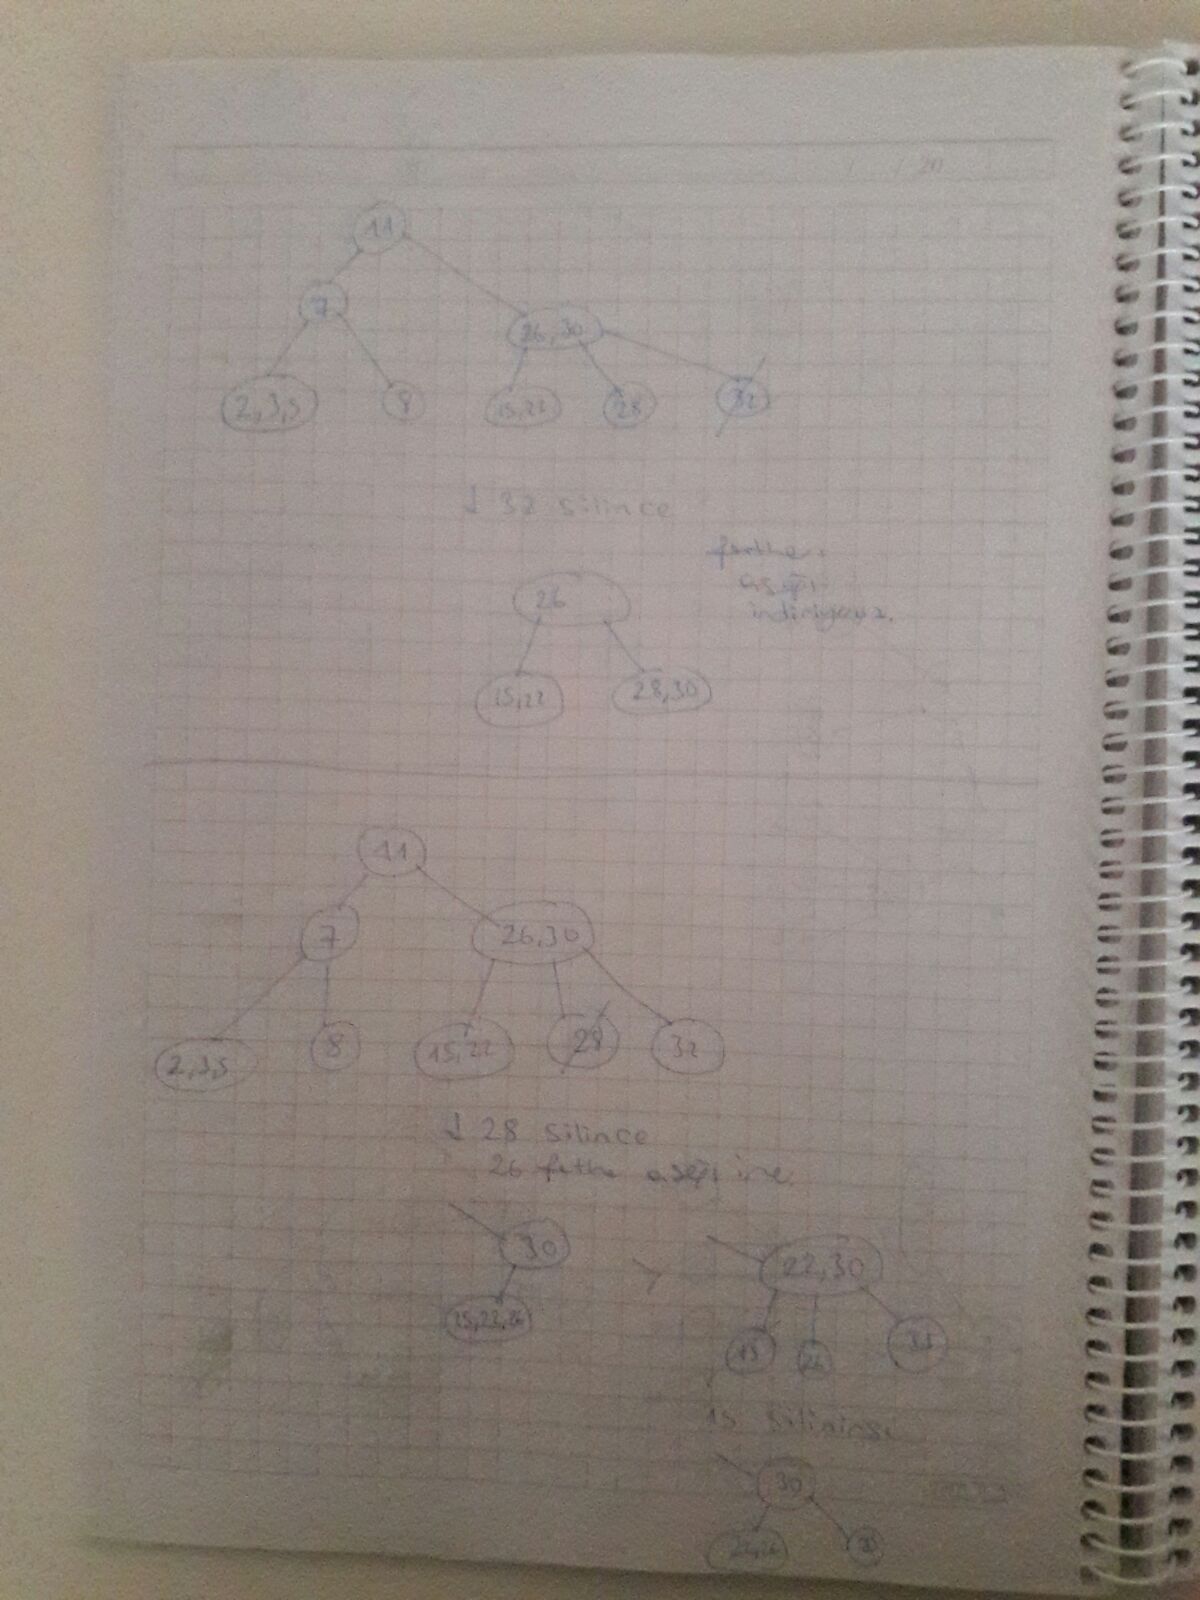 20
11
7
26,30
2,3,5 8 15,22 28 32
↓ 32 silince
aşağı
indiriyoruz.
26
15,22 28,30
11
7 26,30
2,3,5 8 15,22 28 32
↓ 28 silince
26 aşağı iner.
30 > 22,30
15,22,26 15 26 32
15 silinirse
30
22,26